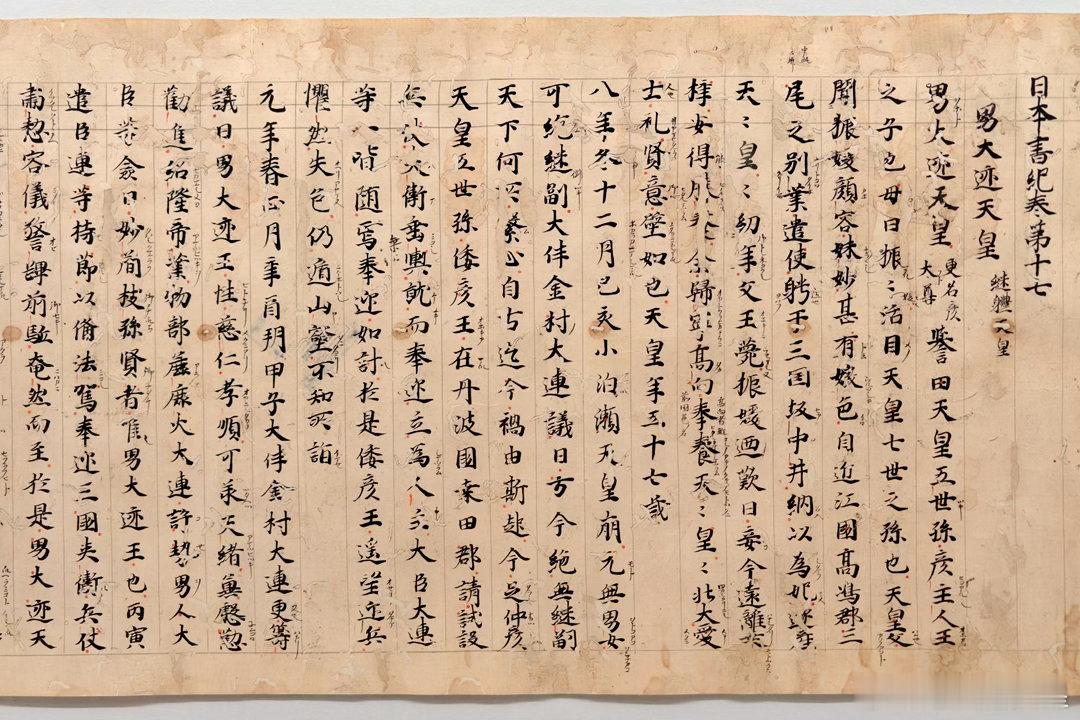 日本書紀卷第十七
男大迹天皇 継體天皇
男大迹天皇 更名彦太尊 譽田天皇五世孫彦主人王
之子也母曰振〻活目天皇七世之孫也天皇父
聞振媛顔容姝妙甚有媺色自近江國高嶋郡三
尾之別業遣使娉于三国坂中井納以為妃遂産
天〻皇〻幼年父王薨振媛迺歎曰妾今遠離桒
梓安得膝養余歸寧高向奉養天〻皇〻壯大愛
士礼賢意豁如也天皇年五十七歳
八年冬十二月己亥小泊瀬天皇崩元無男女
可絶継嗣大伴金村大連議曰方今絶無継嗣
天下何所繋心自古迄今禍由斯起今足仲彦
天皇五世孫倭彦王在丹波國桒田郡請試設
兵仗夾衛乗輿就而奉迎立為人主大臣大連
等一皆随焉奉迎如計於是倭彦王遥望迎兵
懼然失色仍遁山壑不知所詣
元年春正月辛酉朔甲子大伴金村大連更籌
議曰男大迹王性慈仁孝順可承天緒冀慇懃
勧進紹隆帝業物部麁鹿火大連許勢男人大
臣等僉曰妙簡枝孫賢者唯男大迹王也丙寅
遣臣連等持節以備法駕奉迎三國夾衛兵仗
肅整容儀警蹕前駈奄然而至於是男大迹天